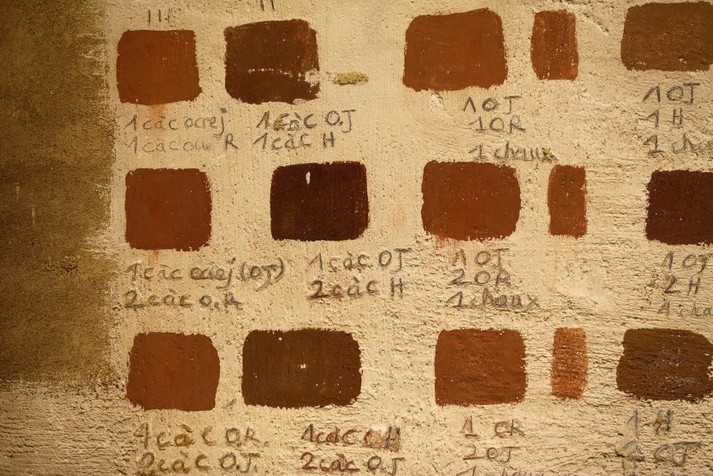 1 càc ocrej
1 càc ocr R
1 càc O.J
1 càc H
1 OJ
1 OR
1 chaux
1 OJ
1 H
1 ch
1 càc ocrej (OJ)
2 càc O.R
1 càc OJ
2 càc H
1 OJ
2 OR
1 chaux
1 OJ
2 H
1 cha
1 càc O.R.
2 càc O.J.
1 càc H
2 càc O.J.
1 OR
2 OJ
1 H
2 OJ